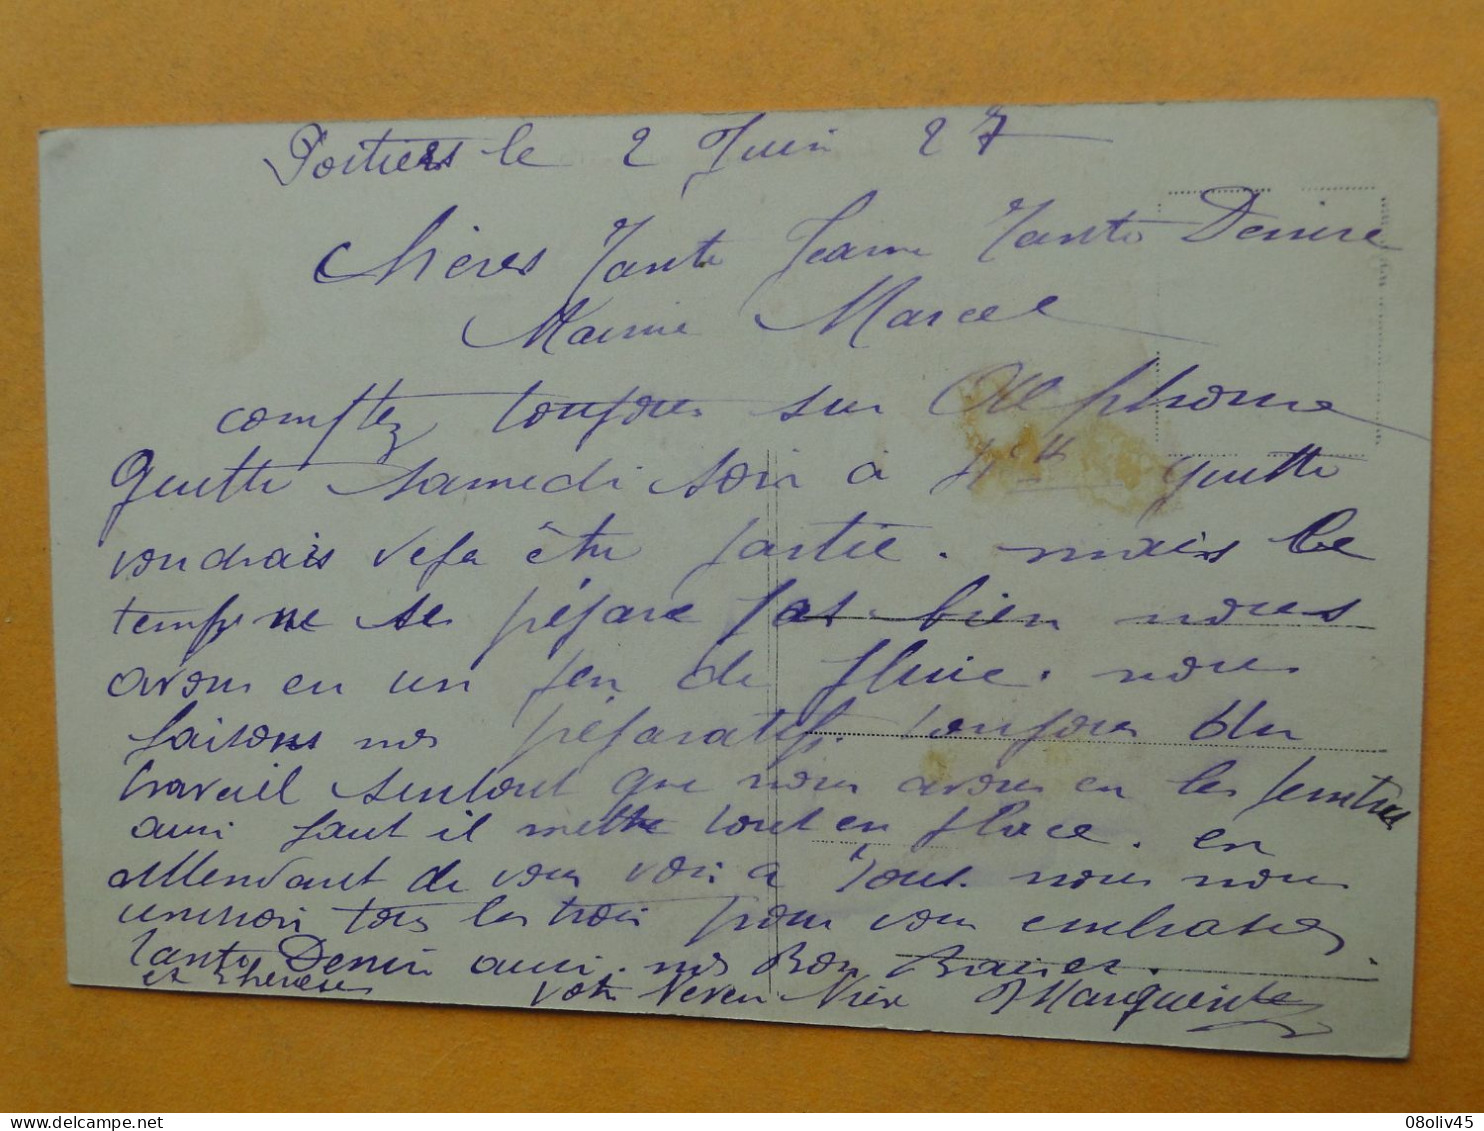 Poitiers le 2 Juin 27
Chères Tante Jeanne Tante Denise
Marcel
comptez toujours sur Alphonse
samedi soir à
voudrais deja être partie. mais le
temps ne se prépare pas bien nous
avons eu un peu de pluie. nous
faisons nos préparatifs. toujours du
travail surtout que nous avons eu les peintres
aussi faut il mettre tout en place. en
attendant de vous voir a tous nous nous
unissons tous les trois pour vous embrasser
Tante Denise aussi. nos Bon Baiser.
et Therese
votre Neveu Nièce Marguerite
08oliv45